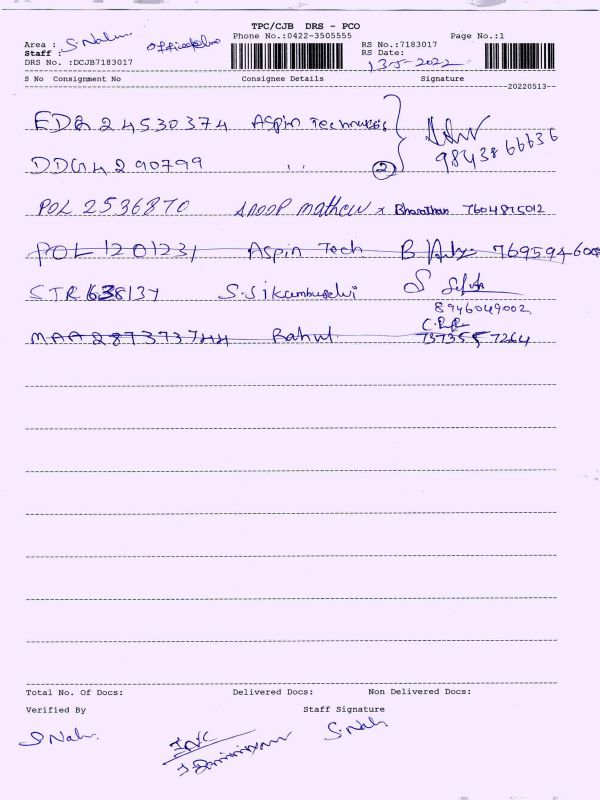 TPC/CJB DRS - PCO
Phone No.:0422-3505555 Page No.:1
Area : S. Nalu
Staff : RS No.:7183017
RS Date: 13-5-2022
DRS No. :DCJB7183017
S No Consignment No Consignee Details Signature
20220513
EDR 24530374 Aspin Technologies
9843866636
DDG 4290799 ,, 2
POL 2536870 Anoop Mathew x Bharathan 7604875012
POL 1201231 Aspin Tech
STR 638137
8946049002
MAA 287373744 Rahul 7373557264
Total No. Of Docs: Delivered Docs: Non Delivered Docs:
Verified By Staff Signature